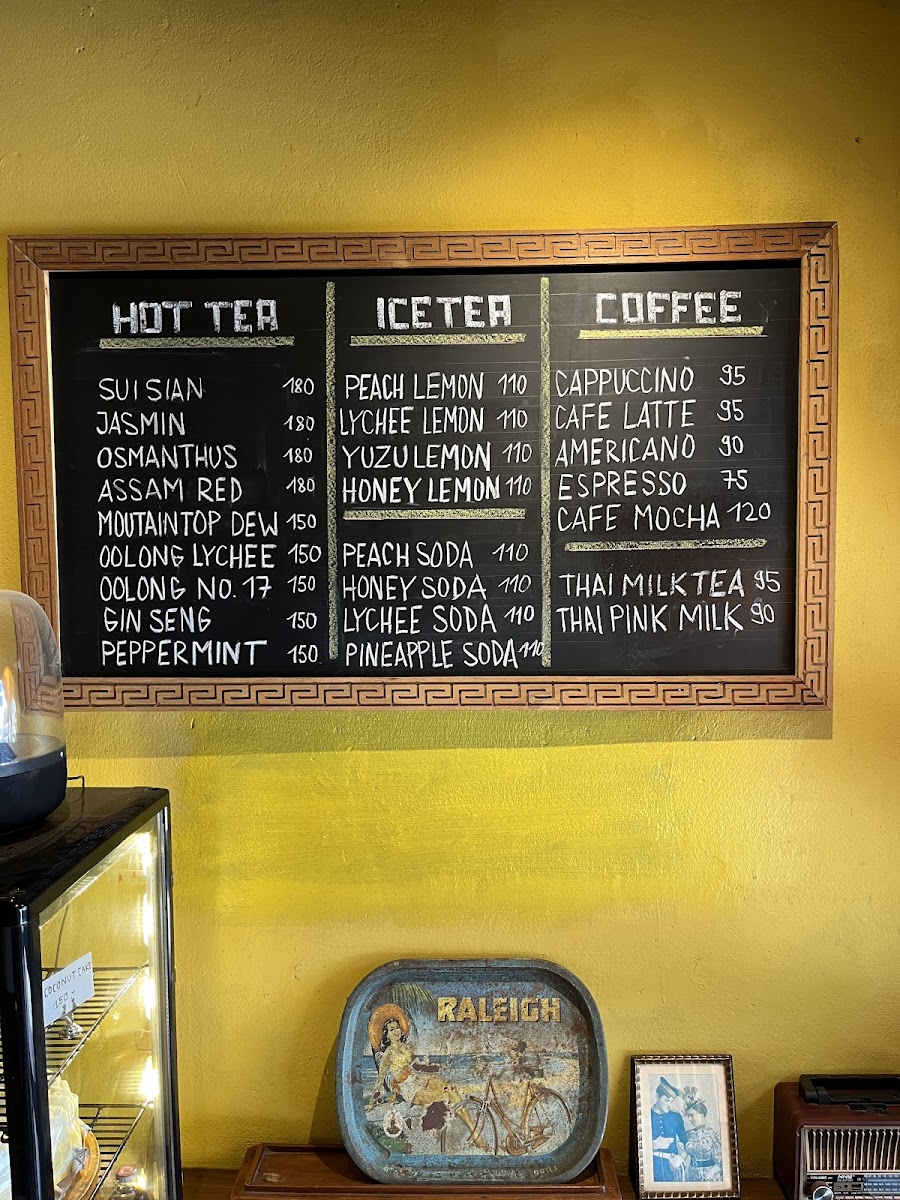 HOT TEA
SUI SIAN 180
JASMIN 180
OSMANTHUS 180
ASSAM RED 180
MOUTAIN TOP DEW 150
OOLONG LYCHEE 150
OOLONG NO. 17 150
GIN SENG 150
PEPPERMINT 150
ICE TEA
PEACH LEMON 110
LYCHEE LEMON 110
YUZU LEMON 110
HONEY LEMON 110
PEACH SODA 110
HONEY SODA 110
LYCHEE SODA 110
PINEAPPLE SODA 110
COFFEE
CAPPUCCINO 95
CAFE LATTE 95
AMERICANO 90
ESPRESSO 75
CAFE MOCHA 120
THAI MILK TEA 95
THAI PINK MILK 90
COCONUT CAKE
150.-
RALEIGH